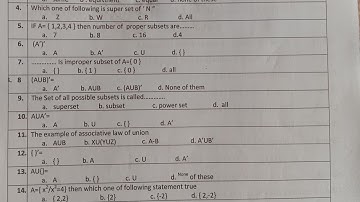 4. Which one of following is super set of ' N:"
a. Z b. W c. R d. All
5. IF A= { 1,2,3,4 } then number of proper subsets are.........
a. 7 b. 8 c. 16 d.4
6. (A')'
a. A b. A' c. U d. { }
7. ............. is improper subset of A={ 0 }
a. { } b. { 1 } c. { 0 } d. all
8 (AUB)'=
a. A' b. AUB c. (AUB)' d. None of them
9. The Set of all possible subsets is called............
a. superset b. subset c. power set d. all
10. AUA'=
a. A b. U c. { } d. A'
11. The example of associative law of union
a. AUB b. XU(YUZ) c. A-B d. A'UB'
12. { }'=
a. { } b. A c. U d. A'
13. AU{}=
a. A b. { } c. U d. None of these
14. A={ x²/x²=4} then which one of following statement true
a. { 2,2} b. {2} c. {-2} d. { 2,-2}